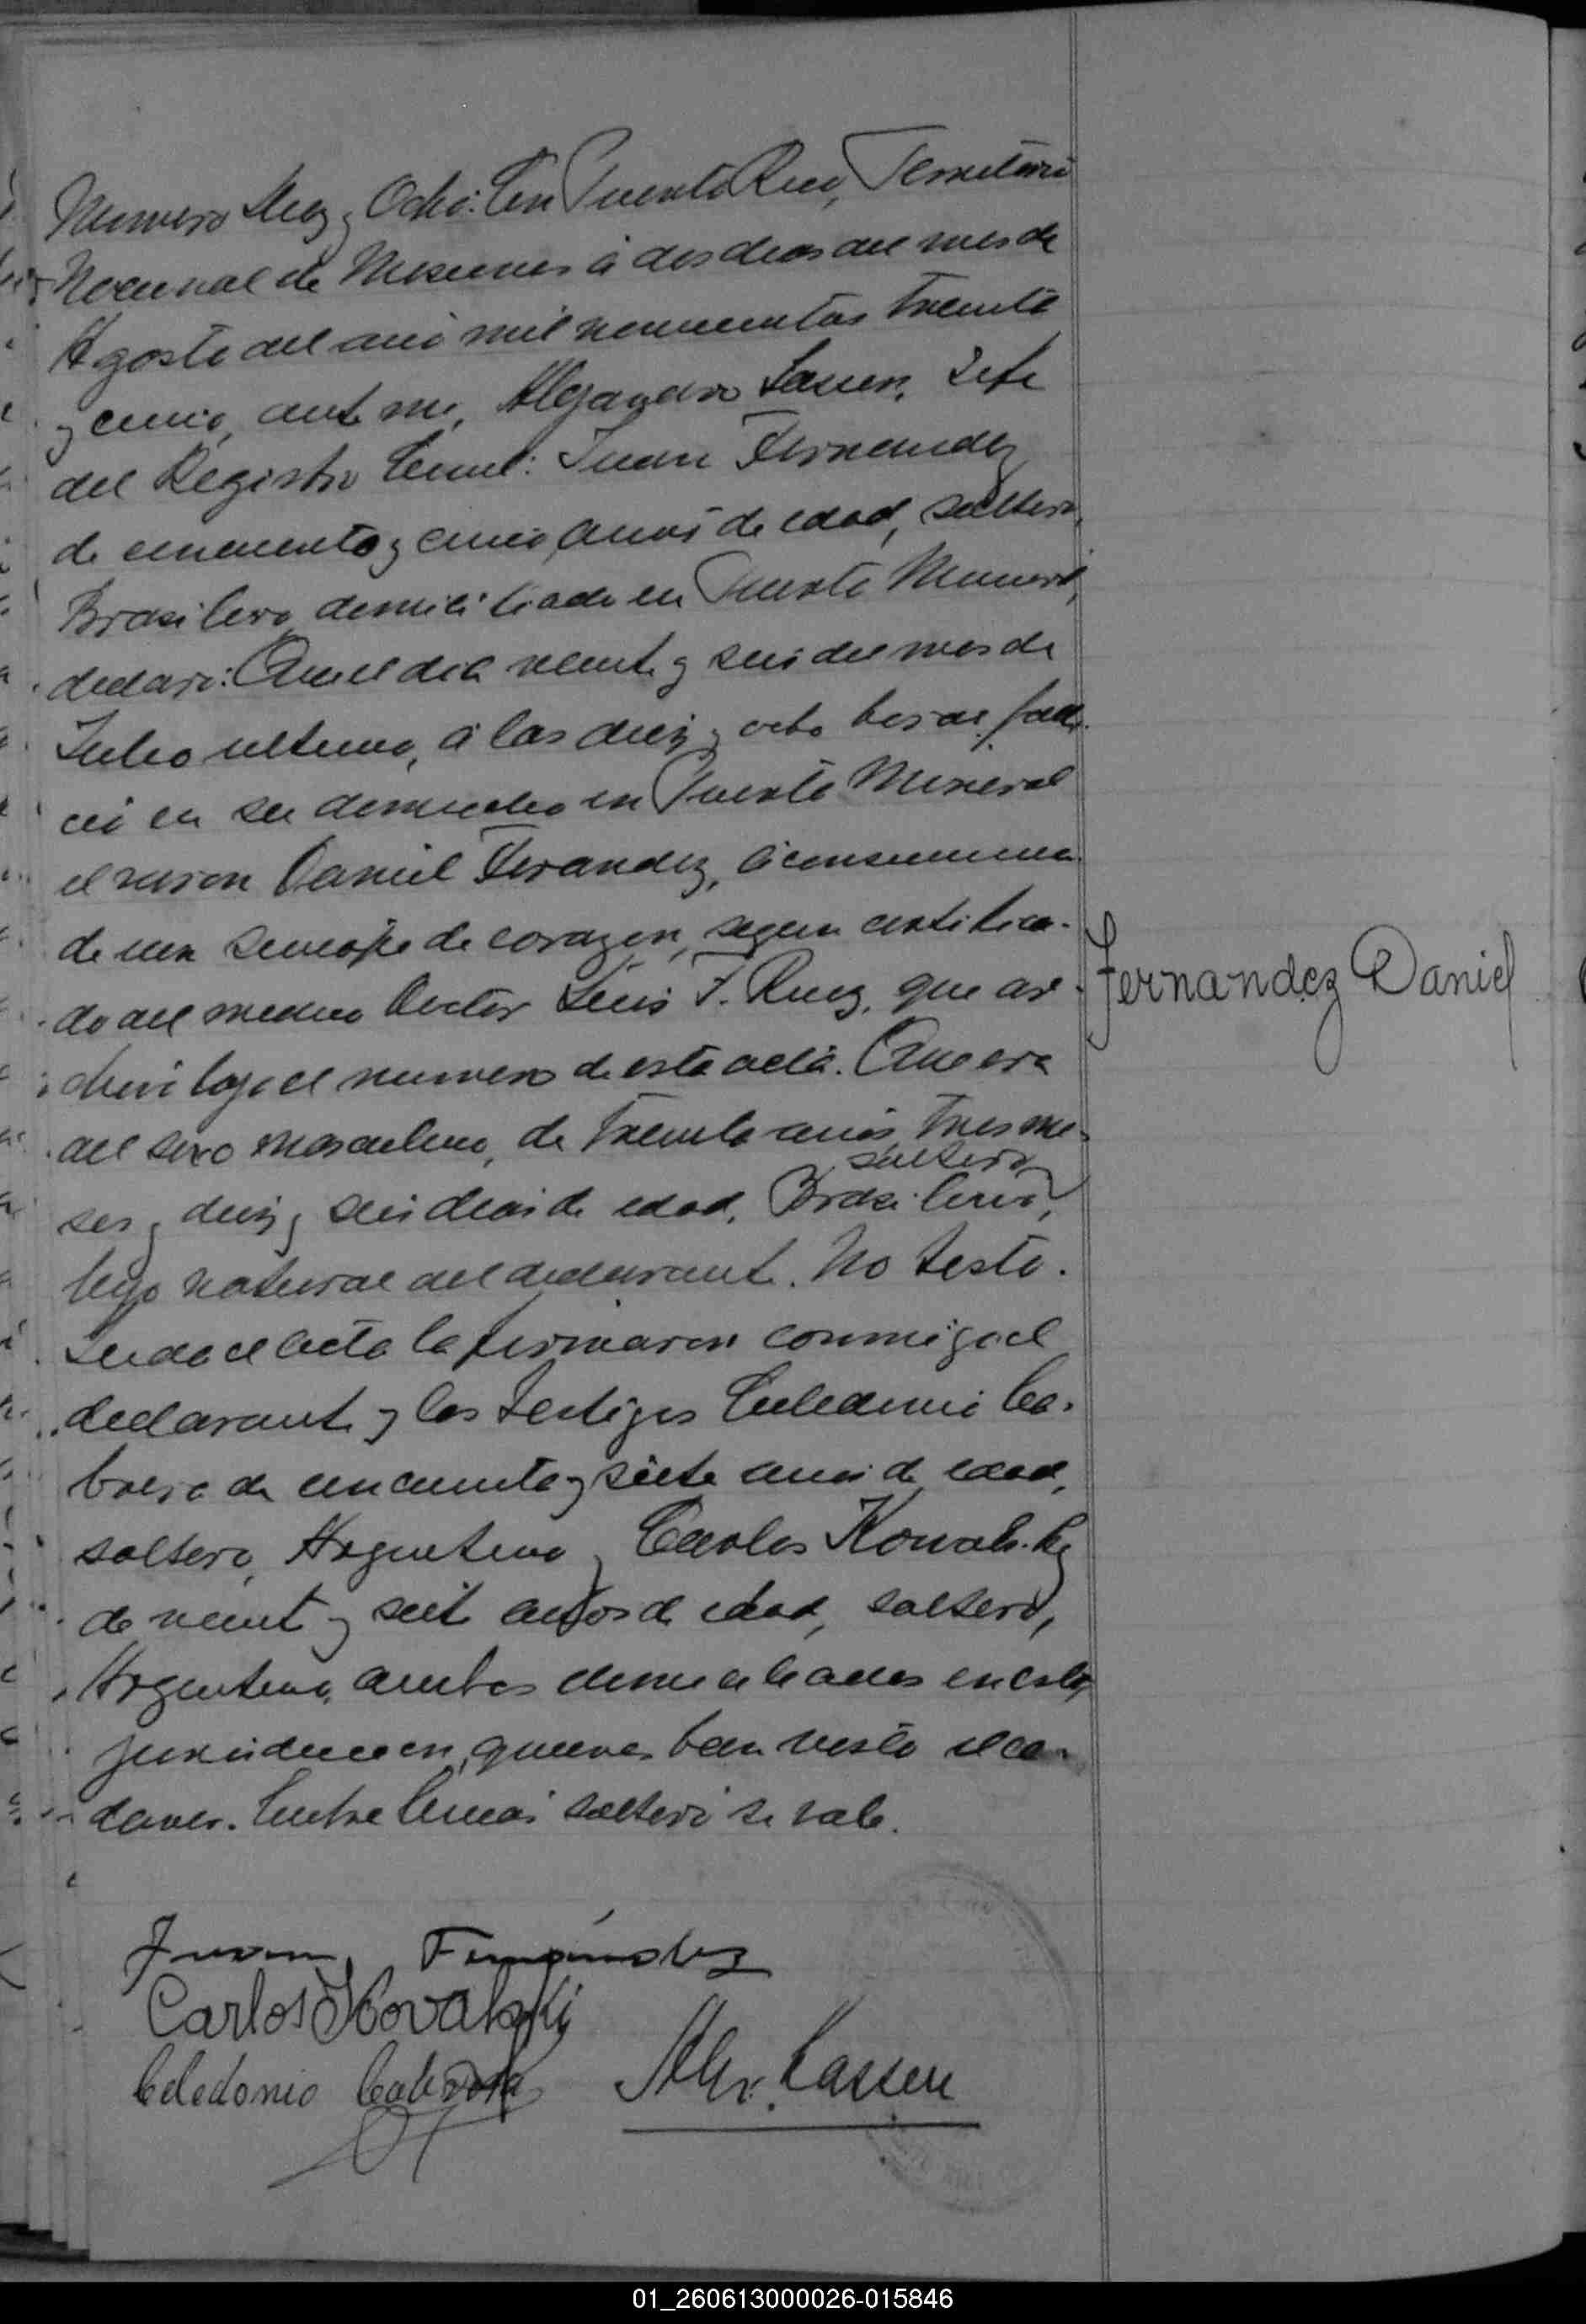 Numero Diez y Ocho: En Puerto Rico, Territorio
Nacional de Misiones á dos dias del mes de
Agosto del año mil novecientos treinta
y cinco, ante mi, Alejandro Lassen, Jefe
del Registro Civil: Juan Fernandez
de cincuenta y cinco años de edad, soltero,
Brasilero domiciliado en Puerto Mineral,
declaró: Que el dia veinte y seis del mes de
Julio ultimo, á las diez y ocho horas falle-
ció en su domicilio en Puerto Mineral
el varon Daniel Ferandez, á consecuencia
de un sincope de corazon, segun certifica-
do del medico Doctor Luis F. Ruiz, que ar-
chivo bajo el numero de esta acta. Que era
del sexo masculino, de treinta años, tres me-
soltero
ses y diez y seis dias de edad, Brasilero,
hijo natural del declarante. No testo.
Leida el acta la firmaron conmigo el
declarante y los testigos Celedonio Ca-
brera de cincuenta y siete años de edad,
soltero, Argentino y Carlos Kowalsky
de veinte y siete años de edad, soltero,
Argentino, ambos domiciliados en esta
jurisdiccion, quienes han visto el ca-
daver. Entre lineas soltero si vale.
Fernandez Daniel
Juan Fernandez
Carlos Kovalski
Celedonio Cabrera
Alej. Lassen
01_260613000026-015846